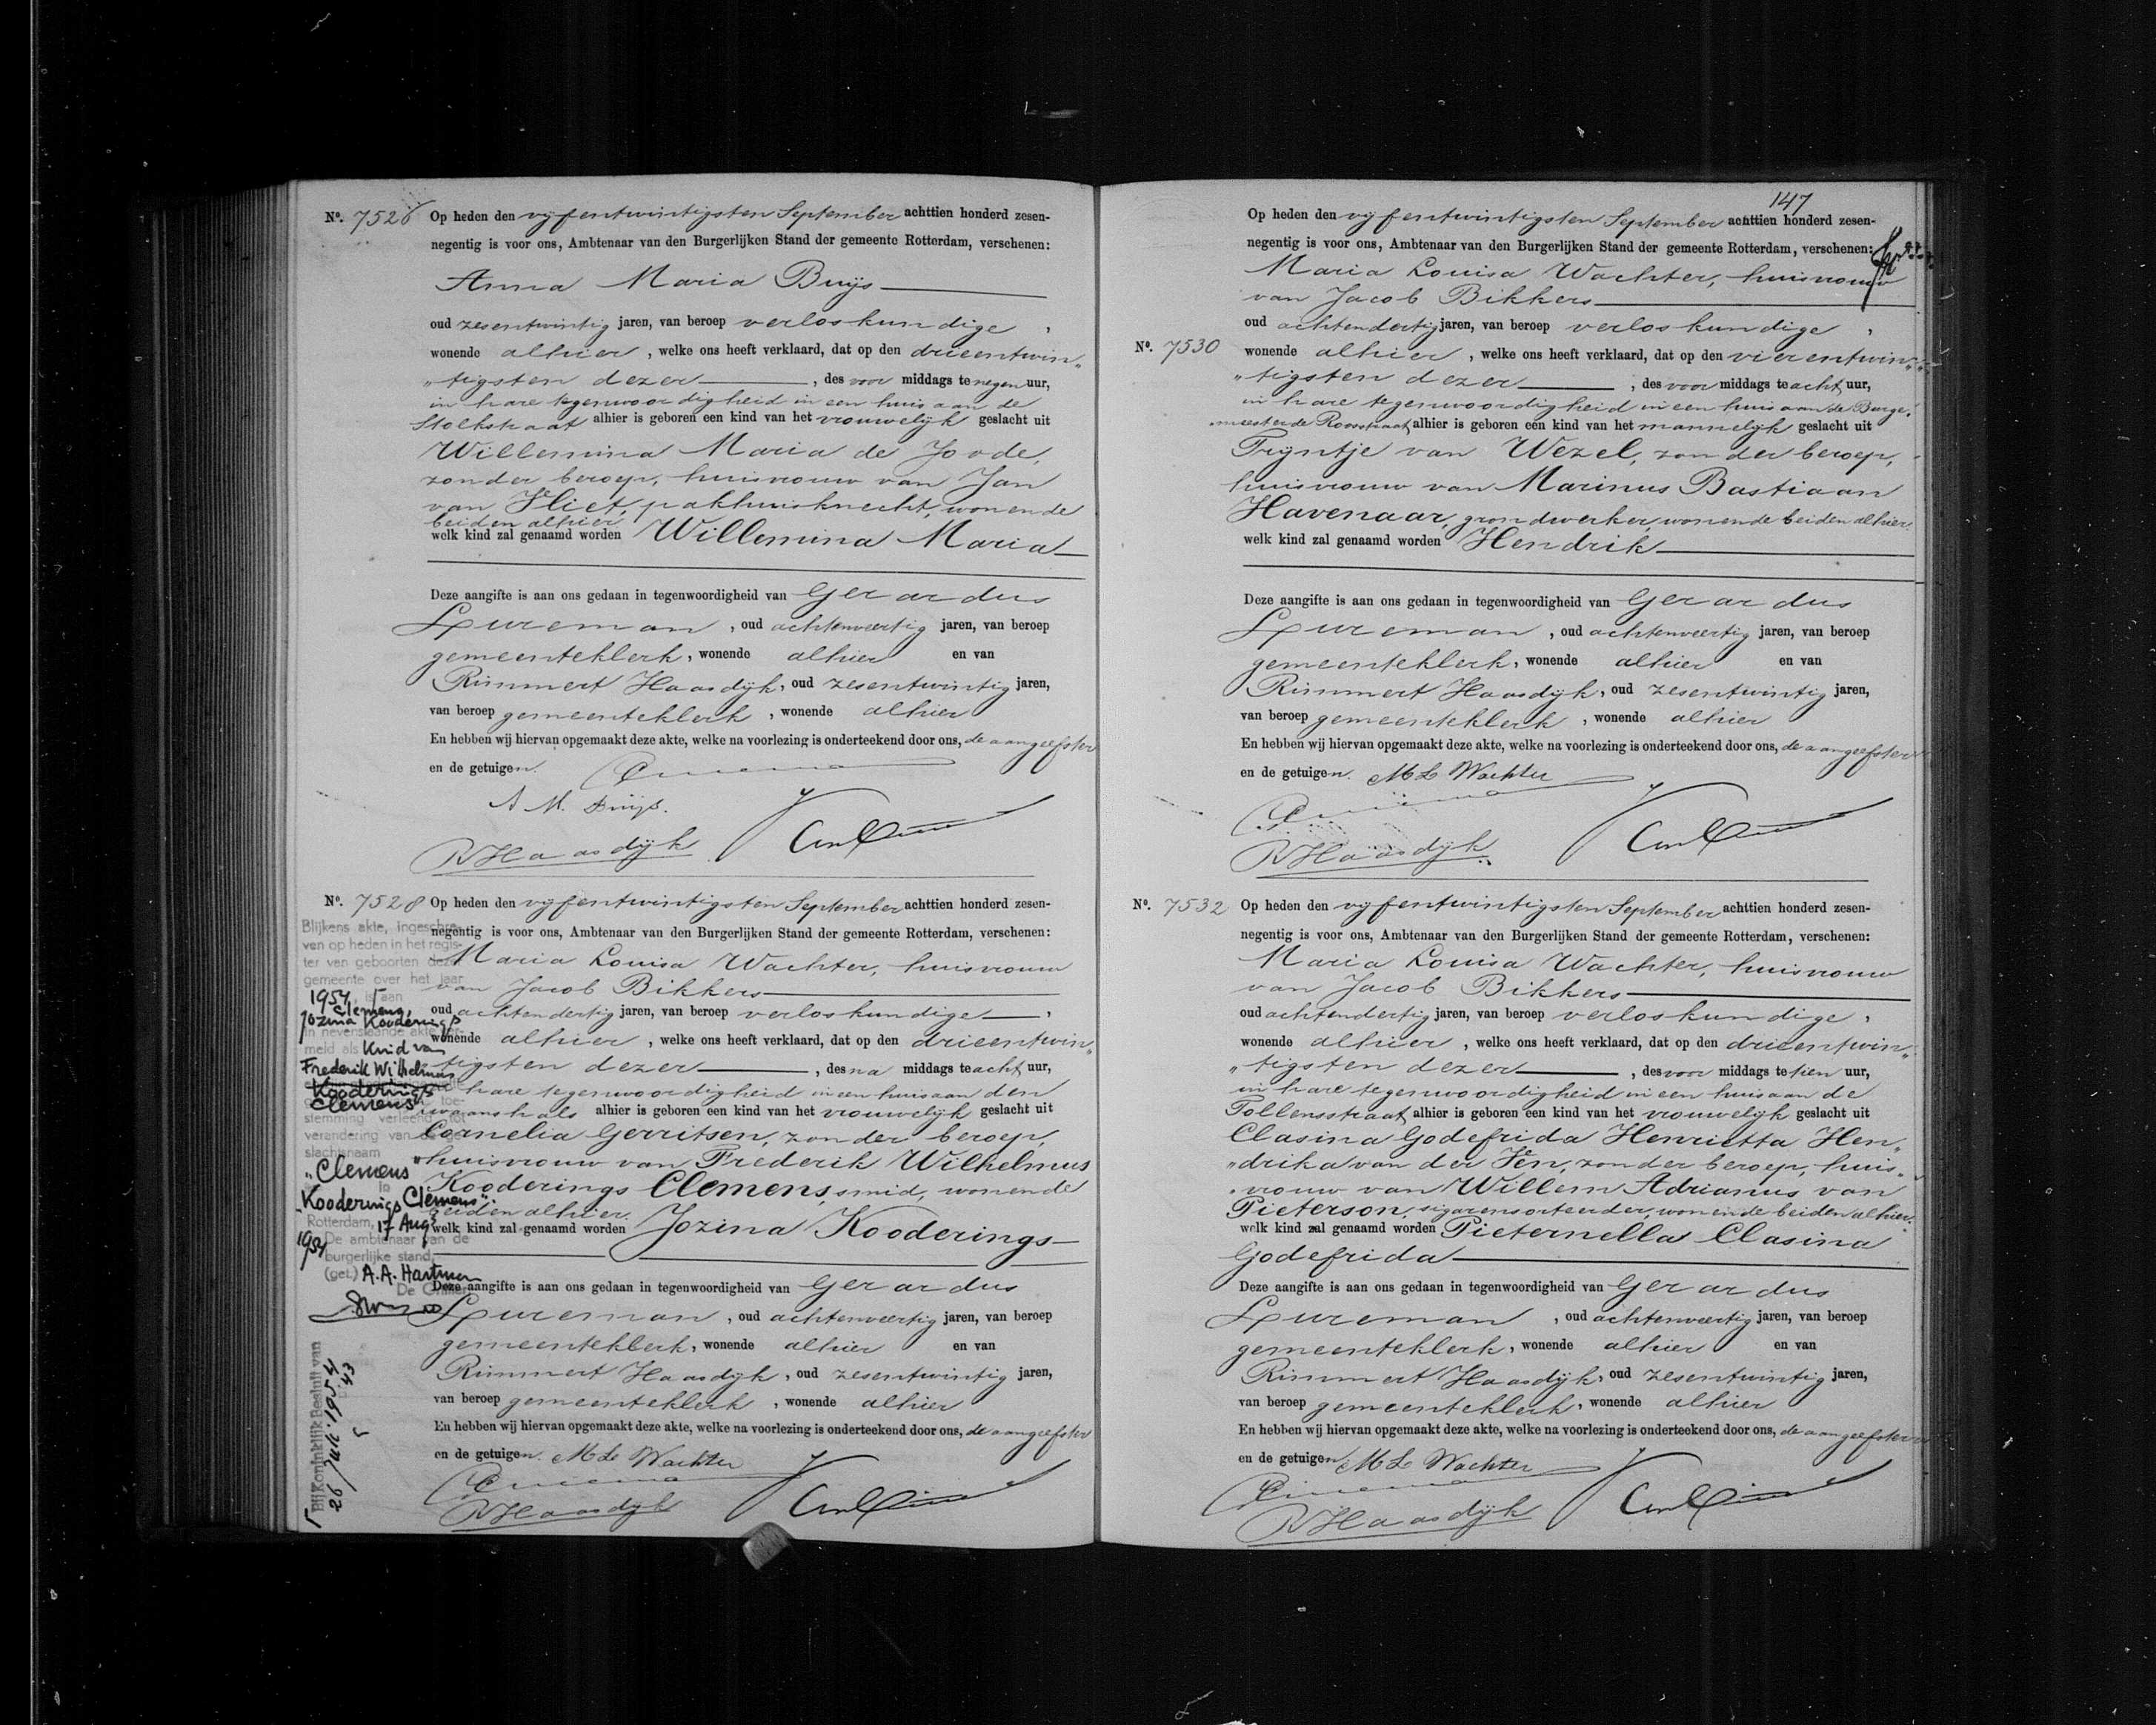 Nº. 7526 Op heden den vijfentwintigsten September achttien honderd zesen-
negentig is voor ons, Ambtenaar van den Burgerlijken Stand der gemeente Rotterdam, verschenen:
Anna Maria Buijs
oud zesentwintig jaren, van beroep verloskundige,
wonende alhier, welke ons heeft verklaard, dat op den drieentwin„
„tigsten dezer, des voor middags te negen uur,
in hare tegenwoordigheid in een huis aan de
Stolkstraat alhier is geboren een kind van het vrouwelijk geslacht uit
Willemina Maria de Joode,
zonder beroep, huisvrouw van Jan
van Vliet, pakhuisknecht, wonende
beiden alhier
welk kind zal genaamd worden Willemina Maria
Deze aangifte is aan ons gedaan in tegenwoordigheid van Gerardus
Lureman, oud achtenveertig jaren, van beroep
gemeenteklerk, wonende alhier en van
Rimmert Haasdijk, oud zesentwintig jaren,
van beroep gemeenteklerk, wonende alhier
En hebben wij hiervan opgemaakt deze akte, welke na voorlezing is onderteekend door ons, de aangeefster
en de getuigen.
A M. Buijs.
R Haasdijk
Nº. 7528 Op heden den vijfentwintigsten September achttien honderd zesen-
negentig is voor ons, Ambtenaar van den Burgerlijken Stand der gemeente Rotterdam, verschenen:
Maria Louisa Wachter, huisvrouw
van Jacob Bikkers
oud achtendertig jaren, van beroep verloskundige,
wonende alhier, welke ons heeft verklaard, dat op den drieentwin„
tigsten dezer, des na middags te acht uur,
in hare tegenwoordigheid in een huis aan den
Zwaanshals alhier is geboren een kind van het vrouwelijk geslacht uit
Cornelia Gerritsen, zonder beroep,
huisvrouw van Frederik Wilhelmus
Kooderings Clemens, smid, wonende
beiden alhier.
welk kind zal genaamd worden Jozina Kooderings
Deze aangifte is aan ons gedaan in tegenwoordigheid van Gerardus
Lureman, oud achtenveertig jaren, van beroep
gemeenteklerk, wonende alhier en van
Rimmert Haasdijk, oud zesentwintig jaren,
van beroep gemeenteklerk, wonende alhier
En hebben wij hiervan opgemaakt deze akte, welke na voorlezing is onderteekend door ons, de aangeefster
en de getuigen. M L Wachter
R Haasdijk
Blijkens akte, ingeschre-
ven op heden in het regis-
ter van geboorten dezer
gemeente over het jaar
1954, is aan
Clemens,
Jozina Kooderings
in nevenstaande akte ver-
meld als Kind van
Frederik Wilhelmus
Kooderings
Clemens toe-
stemming verleend tot
verandering van de ge-
slachtsnaam
"Clemens
in
"Kooderings Clemens".
Rotterdam, 17 Aug.
1954
De ambtenaar van de
burgerlijke stand,
(get.) A.A. Hartman
De Griffier
Bij Koninklijk Besluit van
26 Juli 1954
147
Op heden den vijfentwintigsten September achttien honderd zesen-
negentig is voor ons, Ambtenaar van den Burgerlijken Stand der gemeente Rotterdam, verschenen:
Maria Louisa Wachter, huisvrouw
van Jacob Bikkers
oud achtendertig jaren, van beroep verloskundige,
Nº. 7530 wonende alhier, welke ons heeft verklaard, dat op den vierentwin„
„tigsten dezer, des voor middags te acht uur,
in hare tegenwoordigheid in een huis aan de Burge„
„meester de Roosstraat alhier is geboren een kind van het mannelijk geslacht uit
Trijntje van Wezel, zonder beroep,
huisvrouw van Marinus Bastiaan
Havenaar, grondwerker, wonende beiden alhier.
welk kind zal genaamd worden Hendrik
Deze aangifte is aan ons gedaan in tegenwoordigheid van Gerardus
Lureman, oud achtenveertig jaren, van beroep
gemeenteklerk, wonende alhier en van
Rimmert Haasdijk, oud zesentwintig jaren,
van beroep gemeenteklerk, wonende alhier
En hebben wij hiervan opgemaakt deze akte, welke na voorlezing is onderteekend door ons, de aangeefster
en de getuigen. M L Wachter
R Haasdijk
Nº. 7532 Op heden den vijfentwintigsten September achttien honderd zesen-
negentig is voor ons, Ambtenaar van den Burgerlijken Stand der gemeente Rotterdam, verschenen:
Maria Louisa Wachter, huisvrouw
van Jacob Bikkers
oud achtendertig jaren, van beroep verloskundige,
wonende alhier, welke ons heeft verklaard, dat op den drieentwin„
„tigsten dezer, des voor middags te tien uur,
in hare tegenwoordigheid in een huis aan de
Tollensstraat alhier is geboren een kind van het vrouwelijk geslacht uit
Clasina Godefrida Henrietta Hen„
„drika van der Ven, zonder beroep, huis„
„vrouw van Willem Adrianus van
Pieterson, sigarensorteerder, wonende beiden alhier.
welk kind zal genaamd worden Pieternella Clasina
Godefrida
Deze aangifte is aan ons gedaan in tegenwoordigheid van Gerardus
Lureman, oud achtenveertig jaren, van beroep
gemeenteklerk, wonende alhier en van
Rimmert Haasdijk, oud zesentwintig jaren,
van beroep gemeenteklerk, wonende alhier
En hebben wij hiervan opgemaakt deze akte, welke na voorlezing is onderteekend door ons, de aangeefster
en de getuigen M L Wachter
R Haasdijk